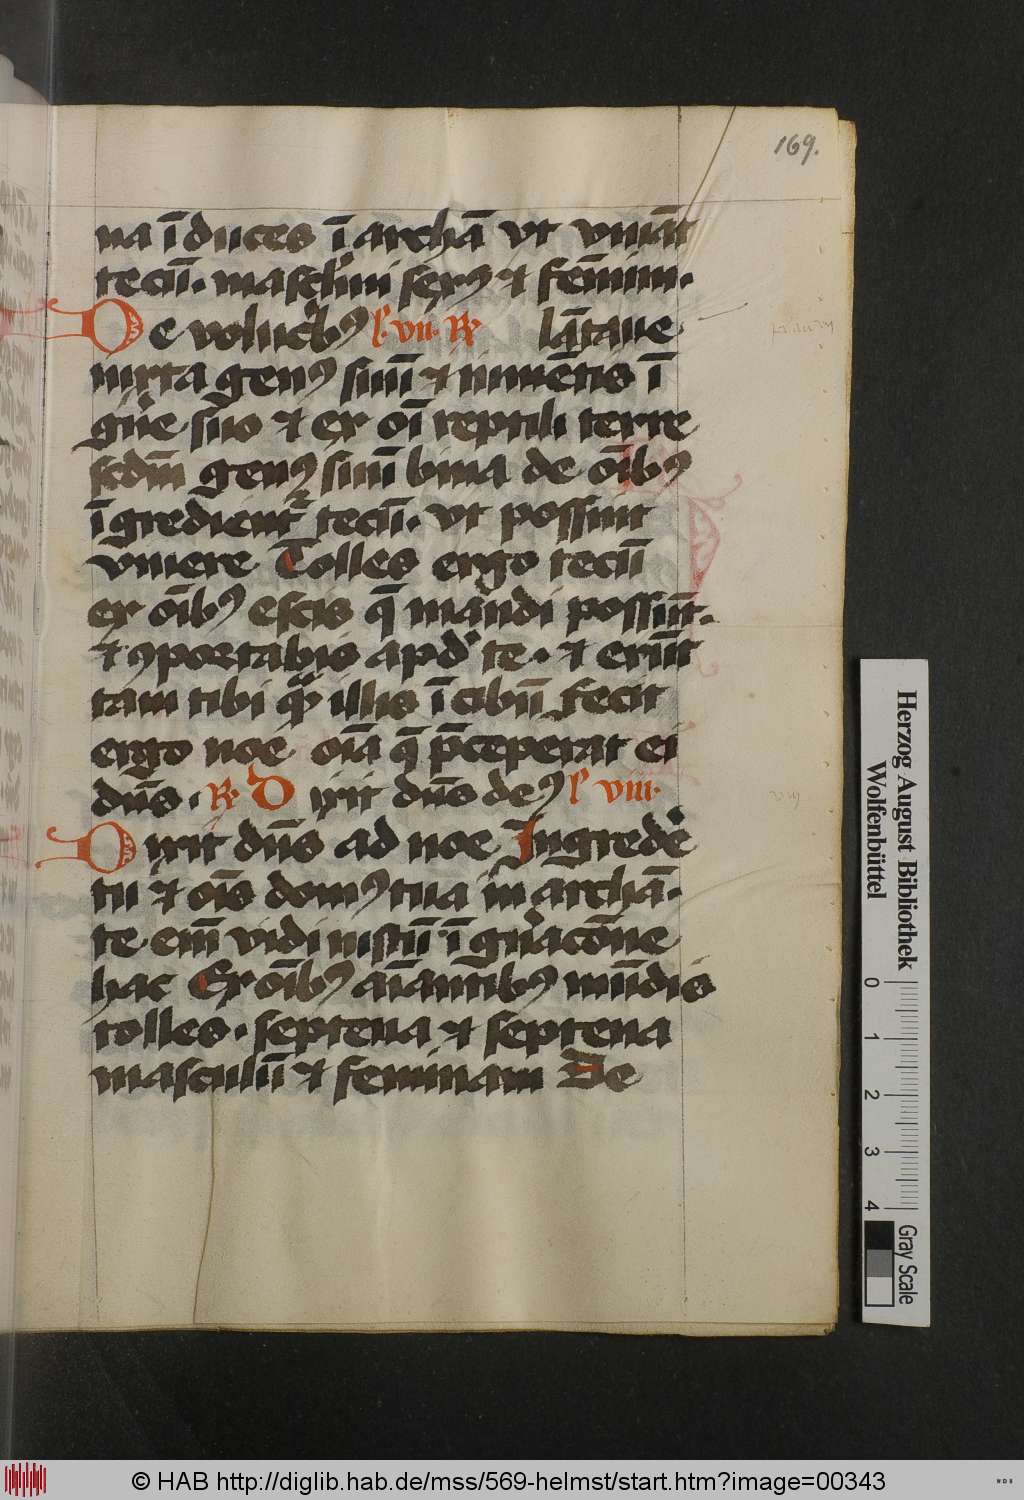 169.
na ī duces ī archā vt viuāt
tecū. masclini serꝰ ⁊ femini.
De volucrbꝰ lͨ vii. ꝶ lātaue
iuxta genꝰ suū ⁊ iumētis ī
gn̄e suo ⁊ ex oī reptili terre
scdm̄ genꝰ suū bina de oībꝰ
īgredient᷑ tecū. vt possint
viuere Tolles ergo tecū
ex oībꝰ escis q̄ mandi possūt.
⁊ ꝯportabis apd te. ⁊ erūt
tam tibi qͣ illis ī cibū fecit
ergo noe oīa q̄ p̄ceperat ei
dn̄s. ꝶ Dixit dn̄s deꝰ lͨ viii.
Dixit dn̄s ad noe Ingrede
tu ⁊ oīs domꝰ tua in archā.
te em̄ vidi iustū ī gn̄acōne
hac Ex oībꝰ aīantibꝰ mūdis
tolles. septena ⁊ septena
masculū ⁊ feminam De
Herzog August Bibliothek
Wolfenbüttel
0 1 2 3 4
Gray Scale
© HAB http://diglib.hab.de/mss/569-helmst/start.htm?image=00343